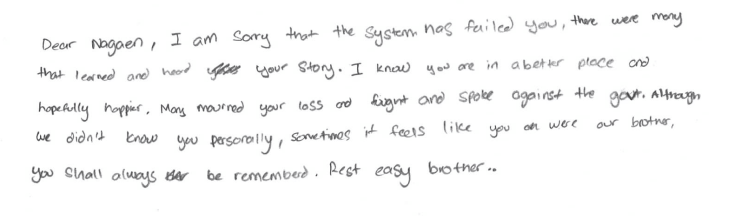 Dear Nagaen, I am sorry that the system has failed you, there were many
that learned and heard your story. I know you are in a better place and
hopefully happier. Many mourned your loss and fought and spoke against the govt. Although
we didn't know you personally, sometimes it feels like you were our brother,
you shall always be rememberd. Rest easy brother..